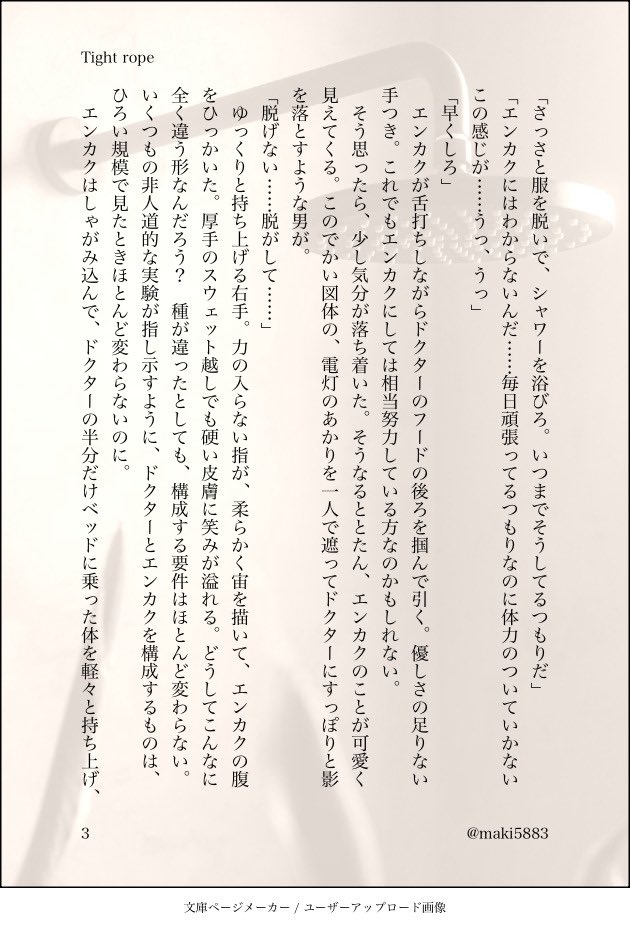 Tight rope
「さっさと服を脱いで、シャワーを浴びろ。いつまでそうしてるつもりだ」
「エンカクにはわからないんだ……毎日頑張ってるつもりなのに体力のついていかない
この感じが……うっ、うっ」
「早くしろ」
　エンカクが舌打ちしながらドクターのフードの後ろを掴んで引く。優しさの足りない
手つき。これでもエンカクにしては相当努力している方なのかもしれない。
　そう思ったら、少し気分が落ち着いた。そうなるととたん、エンカクのことが可愛く
見えてくる。このでかい図体の、電灯のあかりを一人で遮ってドクターにすっぽりと影
を落とすような男が。
「脱げない……脱がして……」
　ゆっくりと持ち上げる右手。力の入らない指が、柔らかく宙を描いて、エンカクの腹
をひっかいた。厚手のスウェット越しでも硬い皮膚に笑みが溢れる。どうしてこんなに
全く違う形なんだろう？　種が違ったとしても、構成する要件はほとんど変わらない。
いくつもの非人道的な実験が指し示すように、ドクターとエンカクを構成するものは、
ひろい規模で見たときほとんど変わらないのに。
　エンカクはしゃがみ込んで、ドクターの半分だけベッドに乗った体を軽々と持ち上げ、
3
@maki5883
文庫ページメーカー / ユーザーアップロード画像